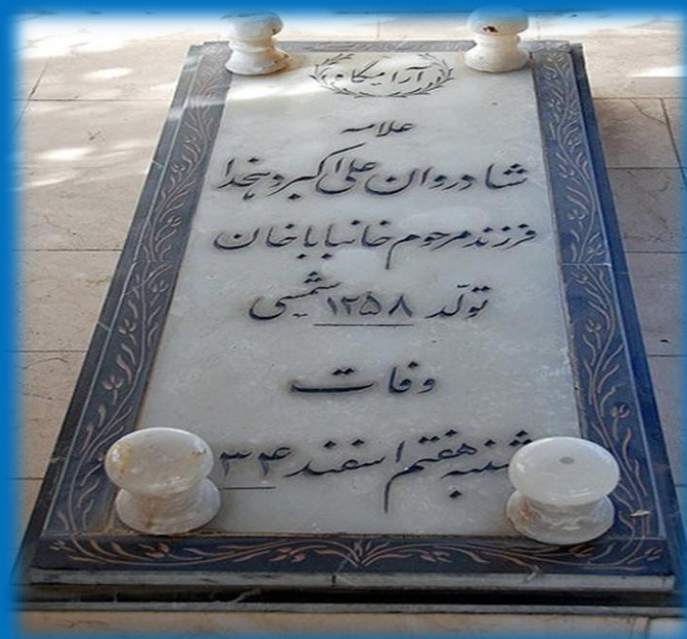 آرامگاه
علامه
شادروان علی اکبر دهخدا
فرزند مرحوم خانباباخان
تولّد ۱۲۵۸ شمسی
وفات
شنبه هفتم اسفند ۳۴